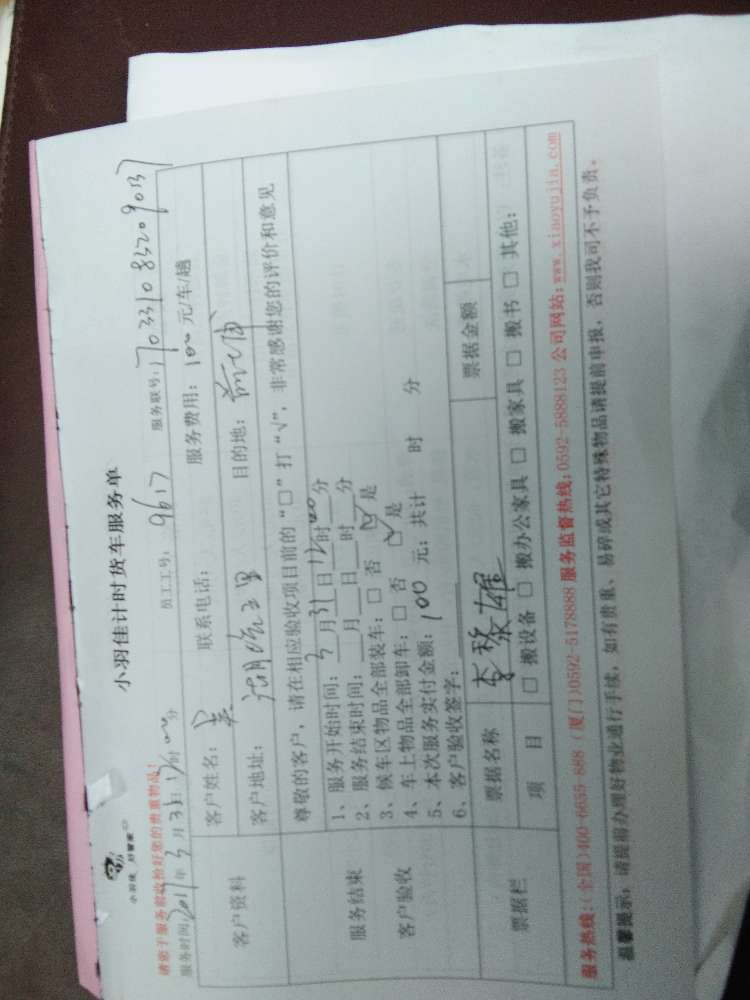 小羽佳 好管家
小羽佳计时货车服务单
请您于服务前收捡好您的贵重物品！
服务时间: 2011年3月31日17时00分 员工工号: 9617 服务联号: 703310832090137
客户资料 客户姓名: 吴 联系电话: 服务费用: 100元/车/趟
客户地址: 湖 里 目的地: 前埔
服务结束
客户验收
尊敬的客户，请在相应验收项目前的“□”打“√”，非常感谢您的评价和意见
1、服务开始时间: 3月31日17时00分
2、服务结束时间: 月 日 时 分
3、候车区物品全部装车: □ 否 ☑ 是
4、车上物品全部卸车: □ 否 ☑ 是
5、本次服务实付金额: 100 元; 共计 时 分
6、客户验收签字:
票据栏 票据名称 票据金额
项 目 □ 搬设备 □ 搬办公家具 □ 搬家具 □ 搬书 □ 其他:
服务热线:(全国)400-6655-888 (厦门)0592-5178888 服务监督热线:0592-5888123 公司网站: www.xiaoyujia.com
温馨提示: 请提前办理好物业通行手续, 如有贵重、易碎或其它特殊物品请提前申报, 否则我司不予负责。